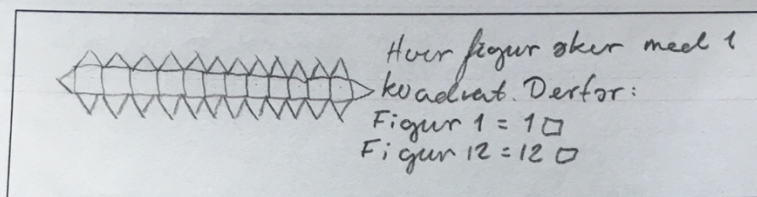 Hver figur øker med 1
kvadrat. Derfor:
Figur 1 = 1 □
Figur 12 = 12 □